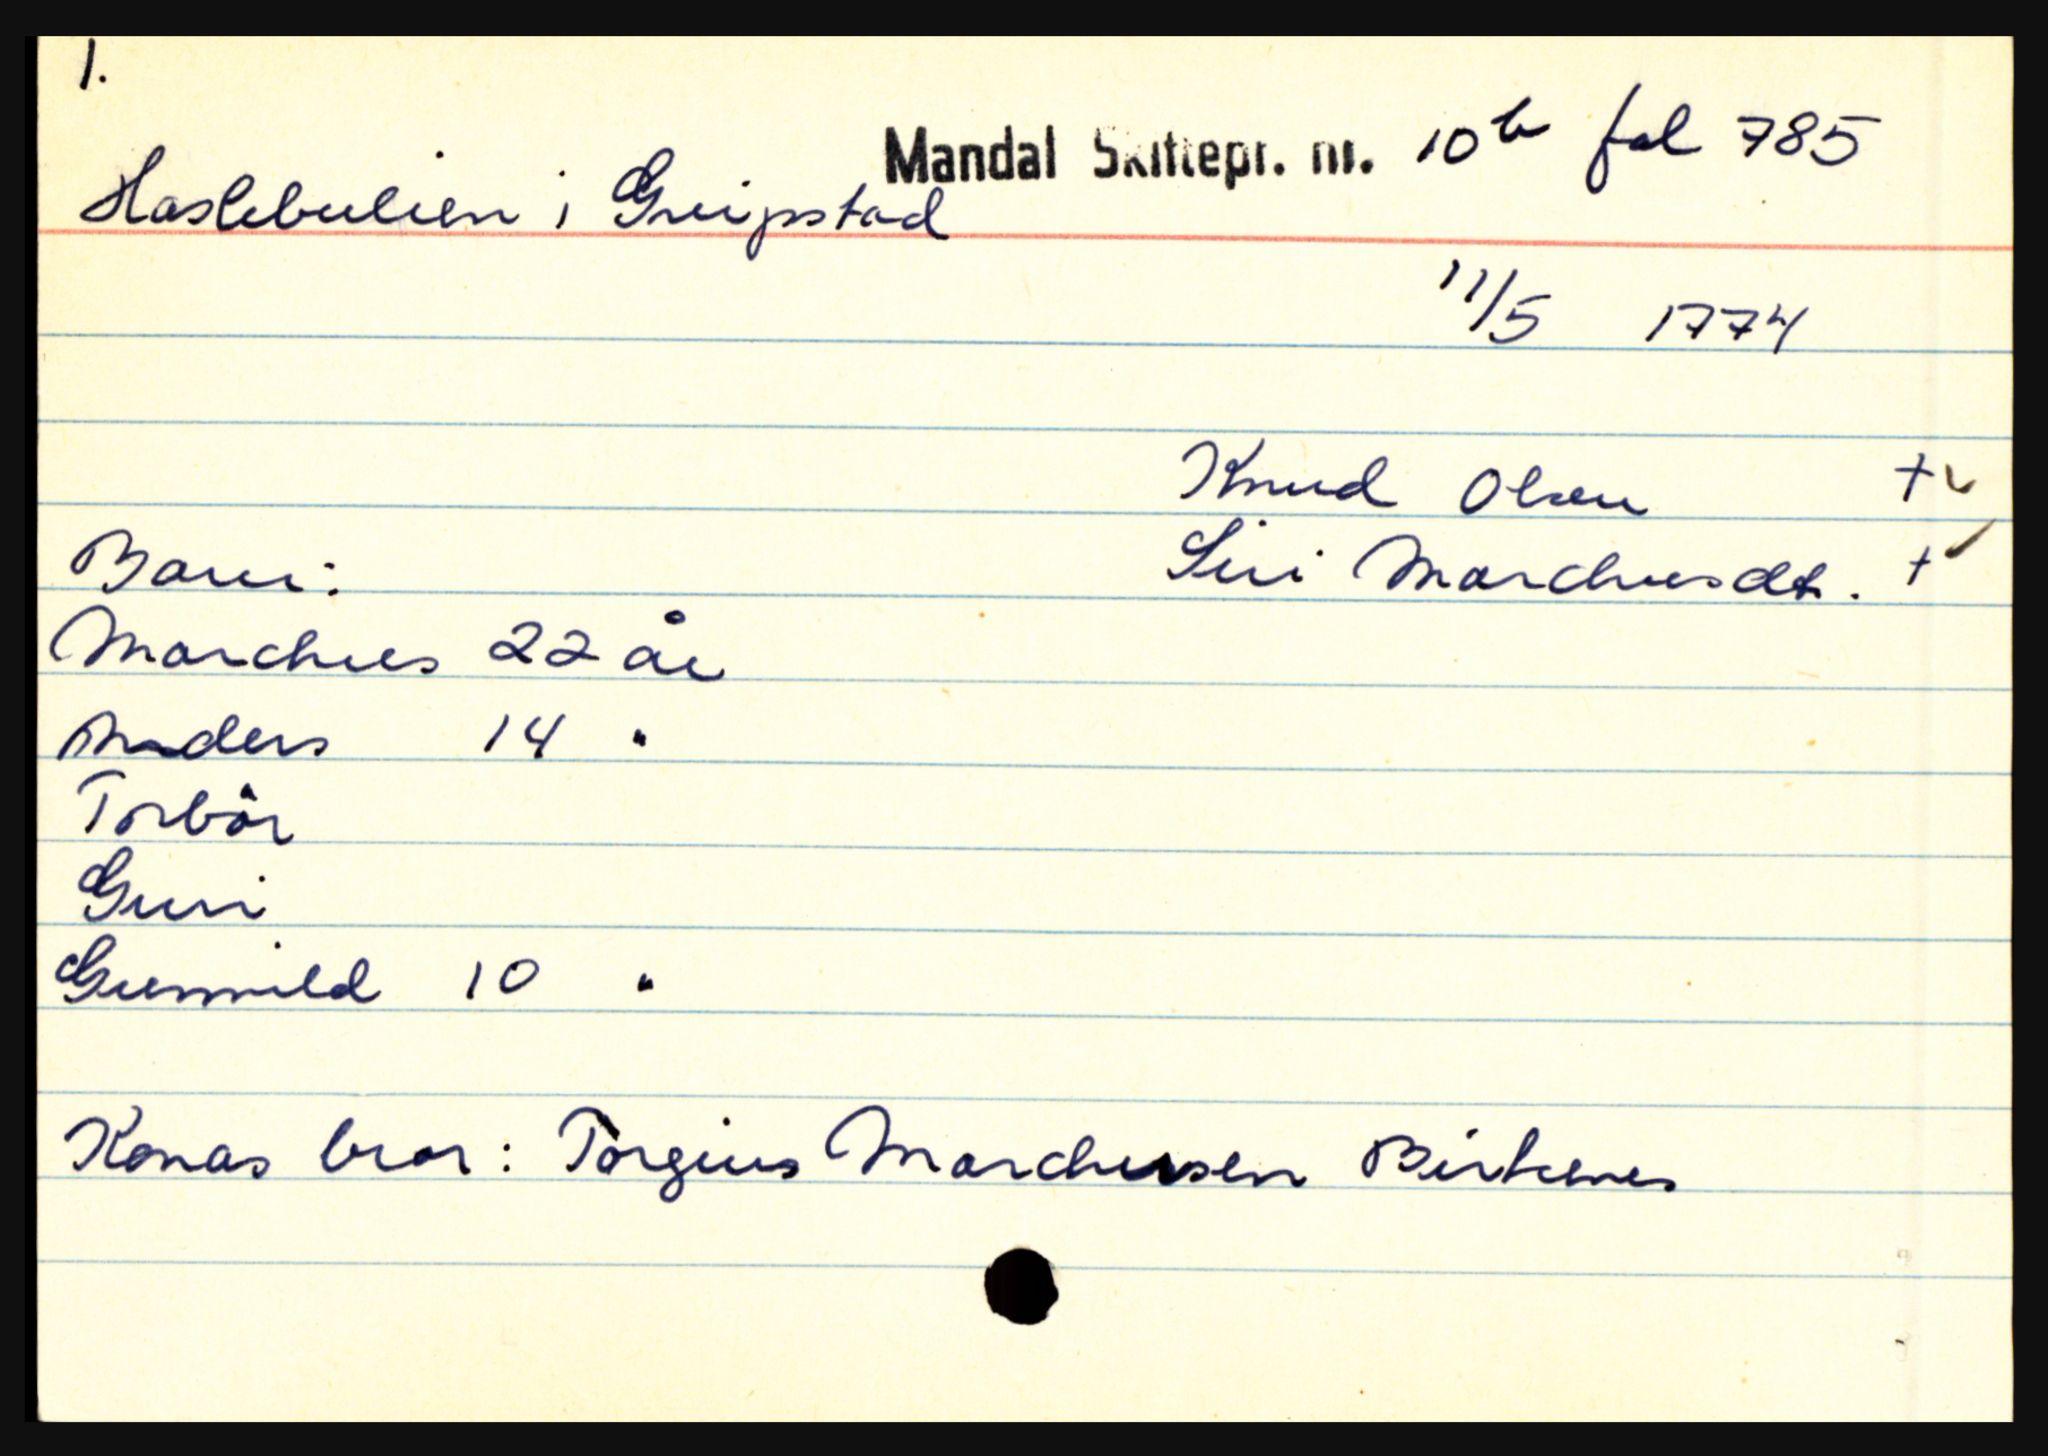 1.
Mandal Skiftepr. nr. 10b fol 785
Haslebulien i Greipstad
11/5 1774
Knud Olsen +
Siri Marchusdt. +
Barn:
Marchus 22 år
Anders 14 "
Torbör
Guri
Gunnild 10 "
Konas bror: Torgius Marchusen Birkenes